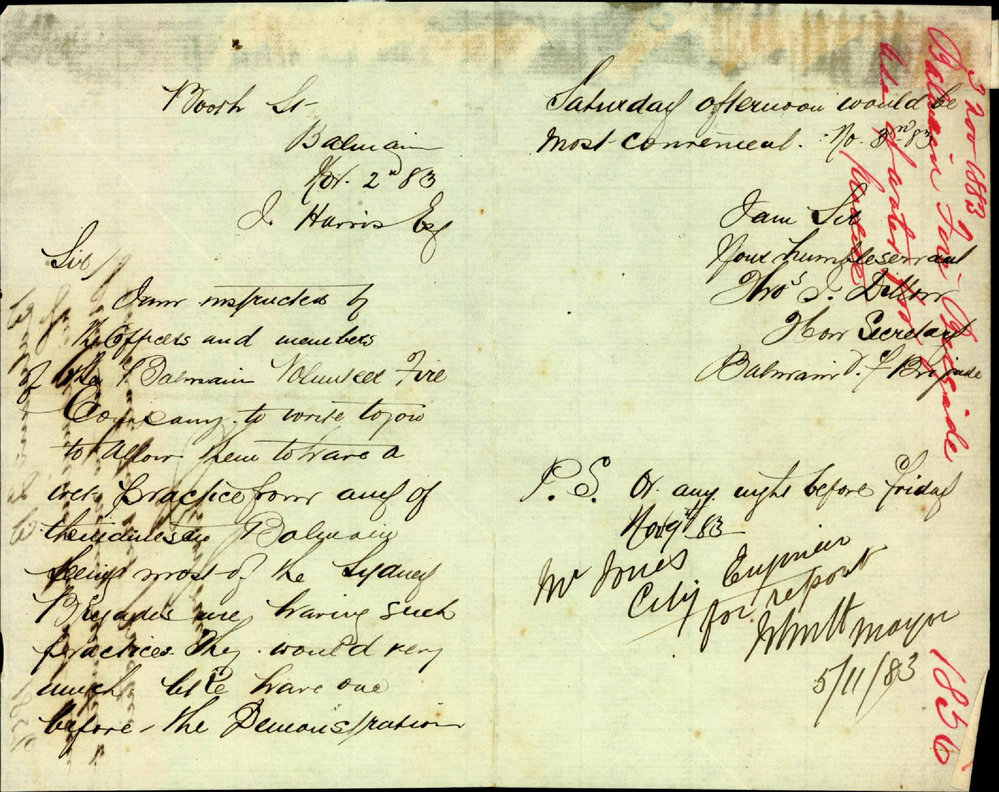 Booth St
Balmain
Nov. 2nd 83
J. Harris Esq
Sir
I am instructed by
the Officers and members
of the Balmain Volunteer Fire
Company to write to you
to allow them to have a
wet practice from any of
the in Balmain
being most of the Sydney
Brigades are having such
practices they would very
much like have one
before the Demonstration
Saturday afternoon would be
most convenient. No. 3rd 83
I am Sir
Your humble servant
Thos J. Dillon
Hon Secretary
Balmain V. F Brigade
P.S. Or any night before Friday
Nov 9th 83
Mr Jones
City Engineer
for report
Mayor
5/11/83
3 Nov 1883
Balmain Fire Brigade
Use of water for
Practice
1856